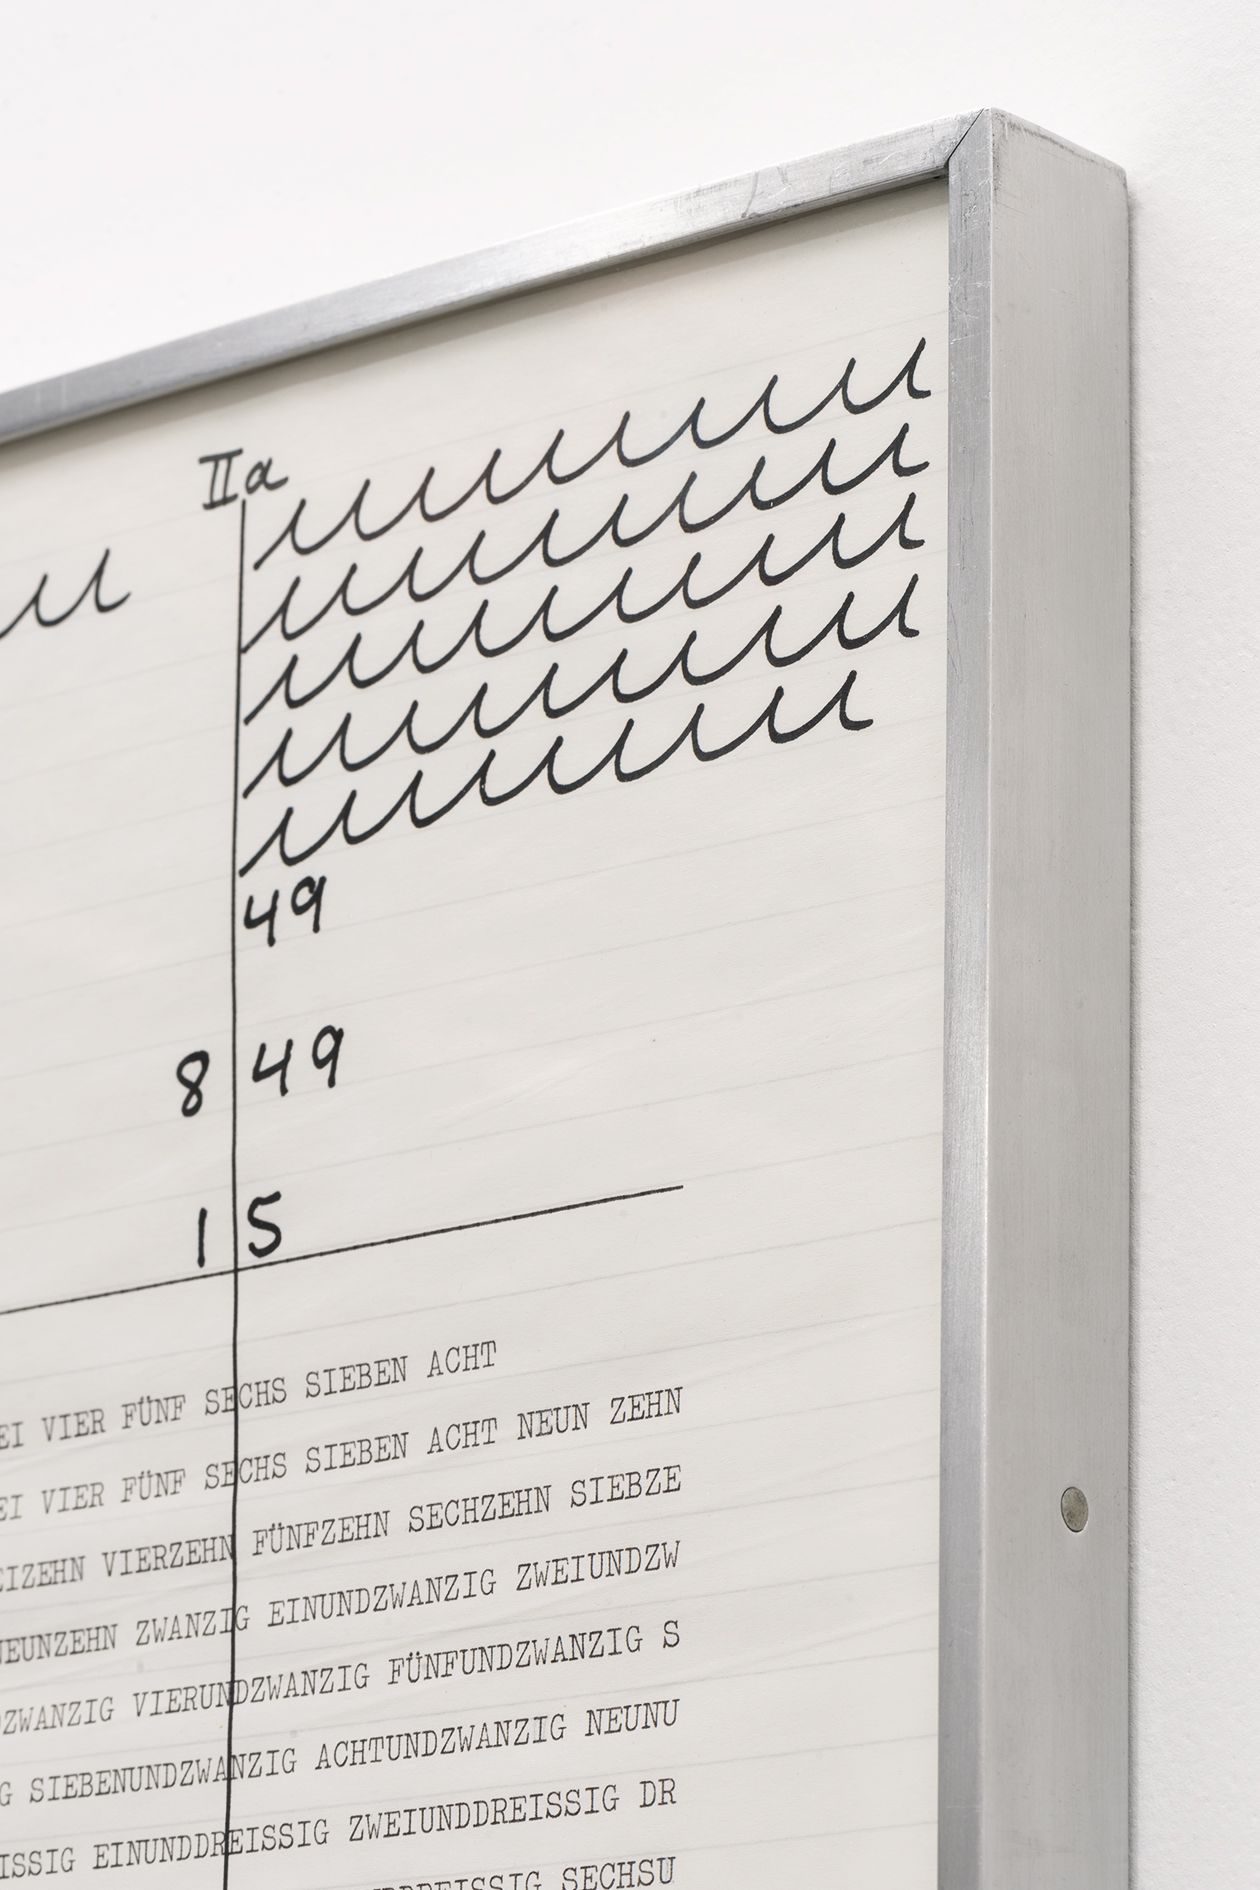 IIa
49
8 49
1 5
EI VIER FÜNF SECHS SIEBEN ACHT
EI VIER FÜNF SECHS SIEBEN ACHT NEUN ZEHN
EIZEHN VIERZEHN FÜNFZEHN SECHZEHN SIEBZE
NEUNZEHN ZWANZIG EINUNDZWANZIG ZWEIUNDZW
DZWANZIG VIERUNDZWANZIG FÜNFUNDZWANZIG S
G SIEBENUNDZWANZIG ACHTUNDZWANZIG NEUNU
ISSIG EINUNDDREISSIG ZWEIUNDDREISSIG DR
DDREISSIG SECHSU